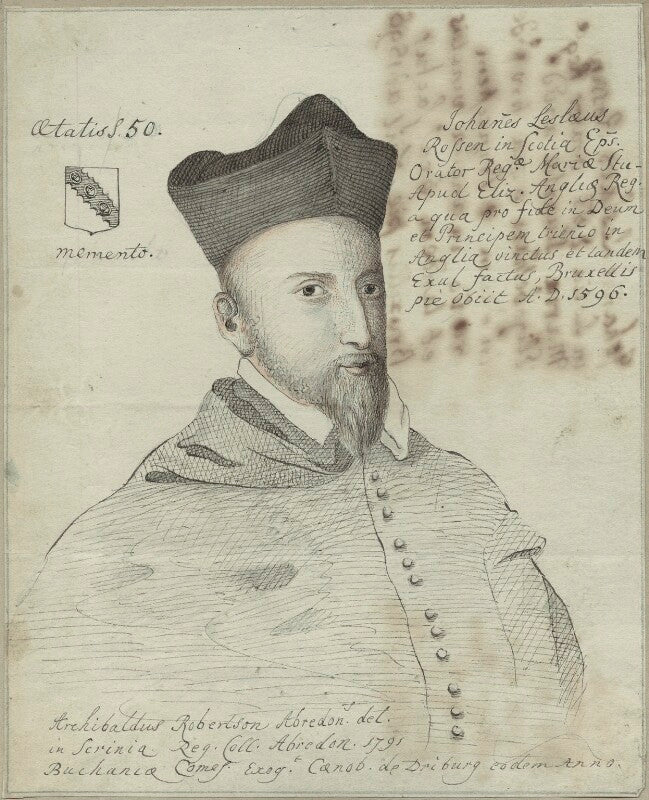 Ætatis S. 50.
memento.
Johan̄es Leslæus
Rossen in Scotia Ep̄s.
Orator Regæ Mariæ Stu-
Apud Eliz. Angliæ Reg.
a qua pro fide in Deum
et Principem trien̄io in
Anglia vinctus et tandem
Exul factus, Bruxellis
pie obiit A. D. 1596.
Archibaldus Robertson Abredont. del.
in Scrinia Reg. Coll. Abredon. 1791
Buchaniæ Comes. Exogt. Cœnob. de Driburg eodem Anno.